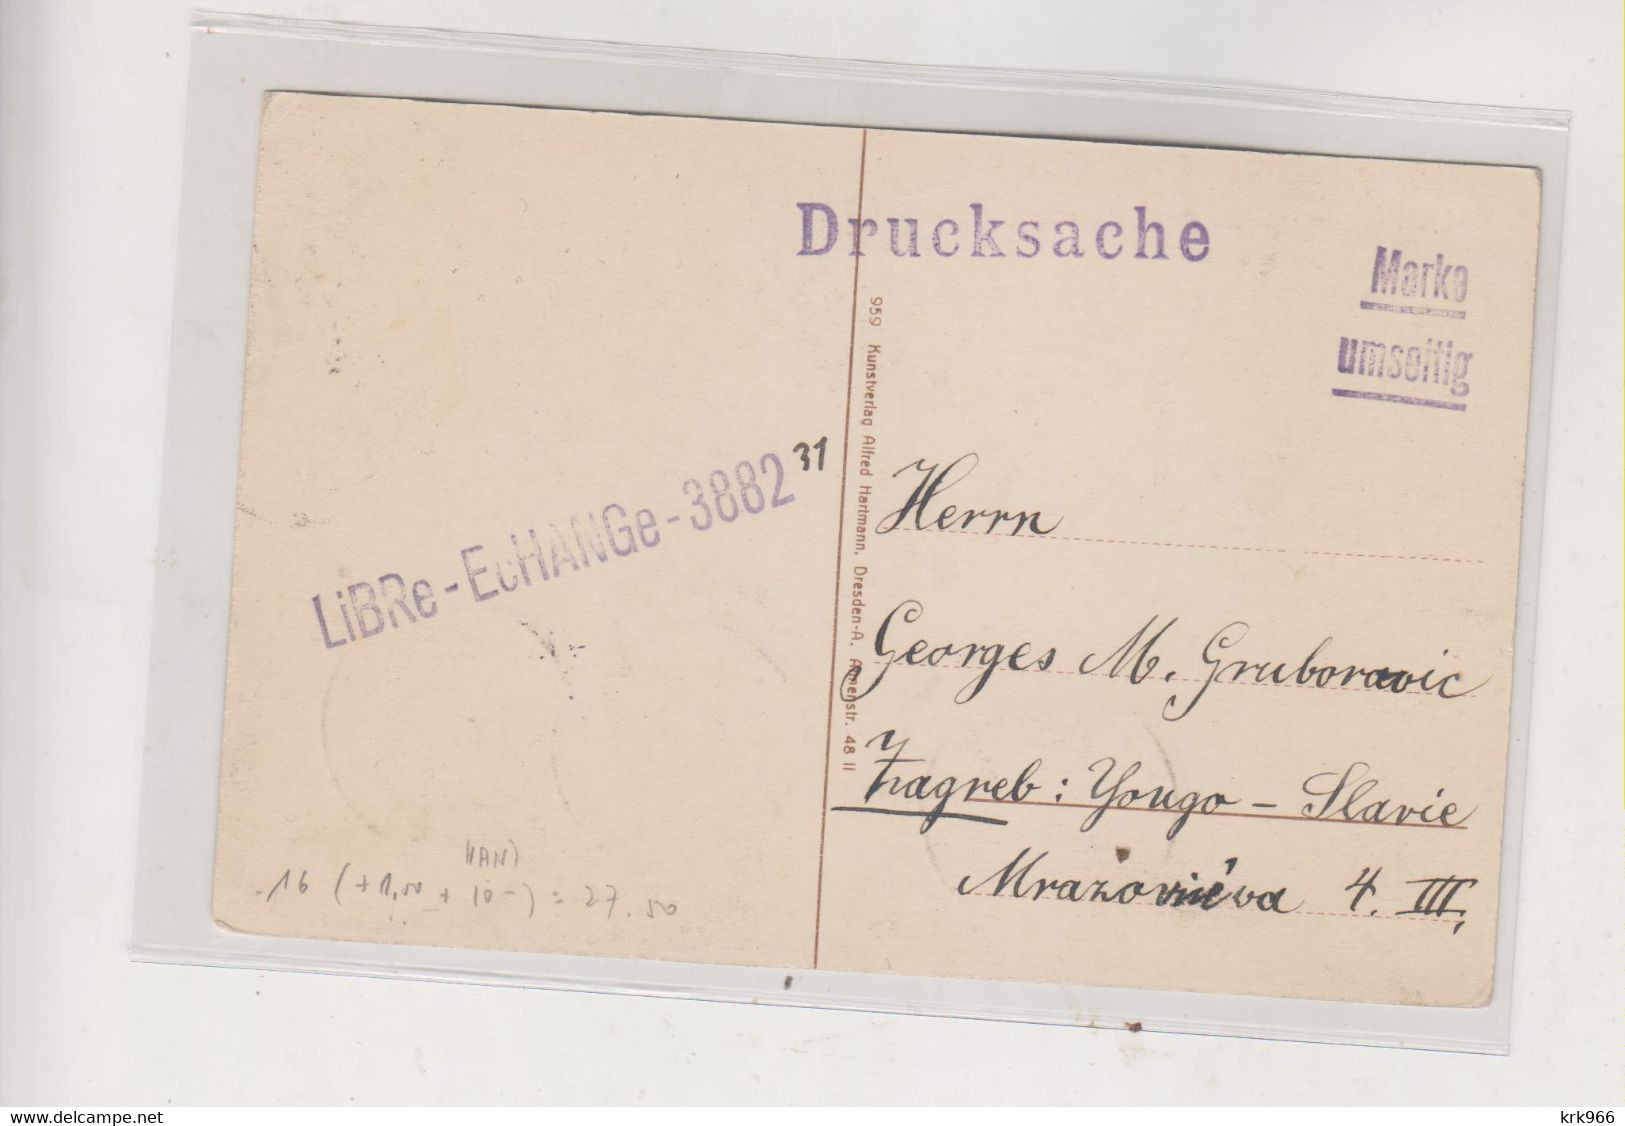 Drucksache
Marke
umseitig
LiBRe-EcHANGe-3882 31
959 Kunstverlag Alfred Hartmann, Dresden-A. Ammenstr. 48 II
Herrn
Georges M. Gruborovic
Zagreb: Yougo-Slavie
Mrazovićeva 4. III,
16 (+1,50 + 10-) = 27.50
www.delcampe.net
krk966